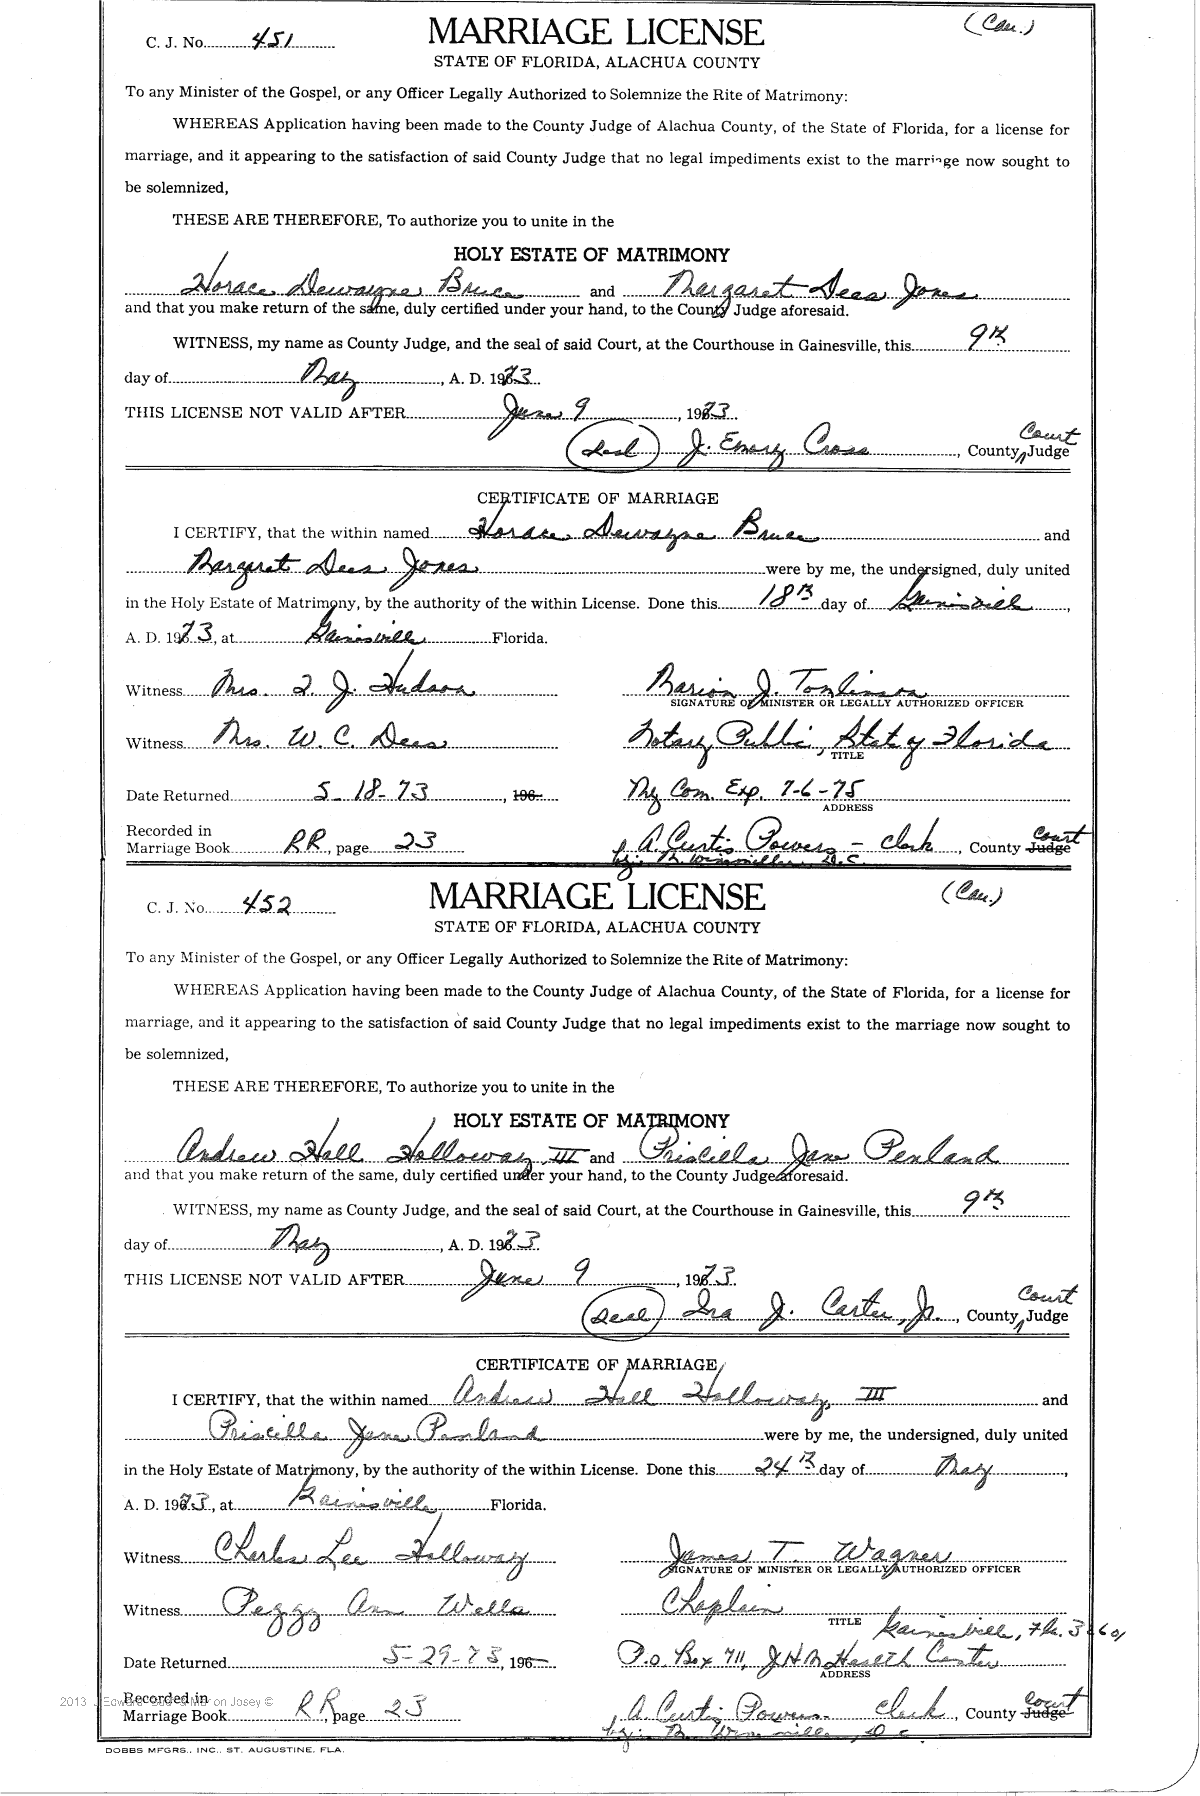 C. J. No. 451 MARRIAGE LICENSE (Cau.)
STATE OF FLORIDA, ALACHUA COUNTY
To any Minister of the Gospel, or any Officer Legally Authorized to Solemnize the Rite of Matrimony:
WHEREAS Application having been made to the County Judge of Alachua County, of the State of Florida, for a license for
marriage, and it appearing to the satisfaction of said County Judge that no legal impediments exist to the marriage now sought to
be solemnized,
THESE ARE THEREFORE, To authorize you to unite in the
HOLY ESTATE OF MATRIMONY
Horace Dewayne Bruce and Margaret Dees Jones
and that you make return of the same, duly certified under your hand, to the County Judge aforesaid.
WITNESS, my name as County Judge, and the seal of said Court, at the Courthouse in Gainesville, this 9th
day of May, A. D. 1973.
THIS LICENSE NOT VALID AFTER June 9, 1973.
(Seal) J. Emory Cross, County Court Judge
CERTIFICATE OF MARRIAGE
I CERTIFY, that the within named Horace Dewayne Bruce and
Margaret Dees Jones were by me, the undersigned, duly united
in the Holy Estate of Matrimony, by the authority of the within License. Done this 18th day of Gainisville,
A. D. 1973, at Gainisville Florida.
Witness Mrs. T. J. Hudson Marion J. Tomlinson
SIGNATURE OF MINISTER OR LEGALLY AUTHORIZED OFFICER
Witness Mrs. W. C. Dees Notary Public, State of Florida
TITLE
Date Returned 5-18-73, 196 My Com. Exp. 7-6-75
ADDRESS
Recorded in
Marriage Book RR, page 23 A. Curtis Powers - Clerk, County Court Judge
by: M. D.C.
C. J. No. 452 MARRIAGE LICENSE (Cau.)
STATE OF FLORIDA, ALACHUA COUNTY
To any Minister of the Gospel, or any Officer Legally Authorized to Solemnize the Rite of Matrimony:
WHEREAS Application having been made to the County Judge of Alachua County, of the State of Florida, for a license for
marriage, and it appearing to the satisfaction of said County Judge that no legal impediments exist to the marriage now sought to
be solemnized,
THESE ARE THEREFORE, To authorize you to unite in the
HOLY ESTATE OF MATRIMONY
Andrew Hall Holloway, III and Priscilla Jane Penland
and that you make return of the same, duly certified under your hand, to the County Judge aforesaid.
WITNESS, my name as County Judge, and the seal of said Court, at the Courthouse in Gainesville, this 9th
day of May, A. D. 1973.
THIS LICENSE NOT VALID AFTER June 9, 1973.
(Seal) Ira J. Carter, Jr., County Court Judge
CERTIFICATE OF MARRIAGE
I CERTIFY, that the within named Andrew Hall Holloway, III and
Priscilla Jane Penland were by me, the undersigned, duly united
in the Holy Estate of Matrimony, by the authority of the within License. Done this 24th day of May,
A. D. 1973, at Gainisville Florida.
Witness Charles Lee Holloway James T. Wagner
SIGNATURE OF MINISTER OR LEGALLY AUTHORIZED OFFICER
Witness Peggy Ann Wells Chaplain
TITLE Gainesville, Fla. 32601
Date Returned 5-29-73, 196 P.O. Box 711, J.H.M. Health Center
ADDRESS
Recorded in
Marriage Book RR, page 23 A. Curtis Powers - Clerk, County Court Judge
by: M. D.C.
DOBBS MFGRS., INC., ST. AUGUSTINE, FLA.